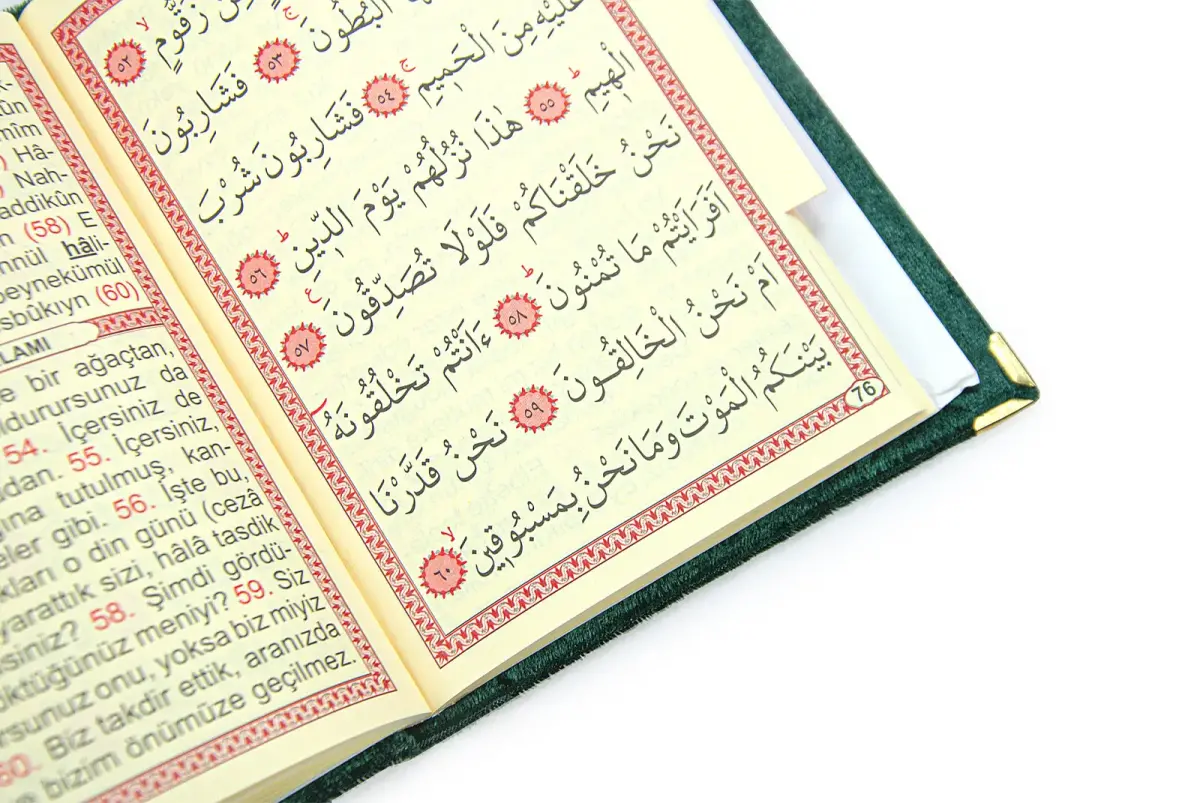 زَقُّومٍ ٥٢
الْبُطُونَ ٥٣ فَشَارِبُونَ
عَلَيْهِ مِنَ الْحَمِيمِ ٥٤ فَشَارِبُونَ شُرْبَ
الْهِيمِ ٥٥ هٰذَا نُزُلُهُمْ يَوْمَ الدِّينِ ٥٦
نَحْنُ خَلَقْنَاكُمْ فَلَوْلَا تُصَدِّقُونَ ٥٧
اَفَرَاَيْتُمْ مَا تُمْنُونَ ٥٨ ءَاَنْتُمْ تَخْلُقُونَهُ
اَمْ نَحْنُ الْخَالِقُونَ ٥٩ نَحْنُ قَدَّرْنَا
بَيْنَكُمُ الْمَوْتَ وَمَا نَحْنُ بِمَسْبُوقِينَ ٦٠
76
mîm
Hâ-
Nah-
addikûn
n (58) E
nnül hâli-
beynekümül
sbûkıyn (60)
LAMI
e bir ağaçtan,
ldurursunuz da
54. İçersiniz de
dan. 55. İçersiniz,
ına tutulmuş, kan-
eler gibi. 56. İşte bu,
kları o din günü (cezâ
yarattık sizi, hâlâ tasdik
siniz? 58. Şimdi gördü-
üktüğünüz meniyi? 59. Siz
rsunuz onu, yoksa biz miyiz
60. Biz takdir ettik, aranızda
e bizim önümüze geçilmez.